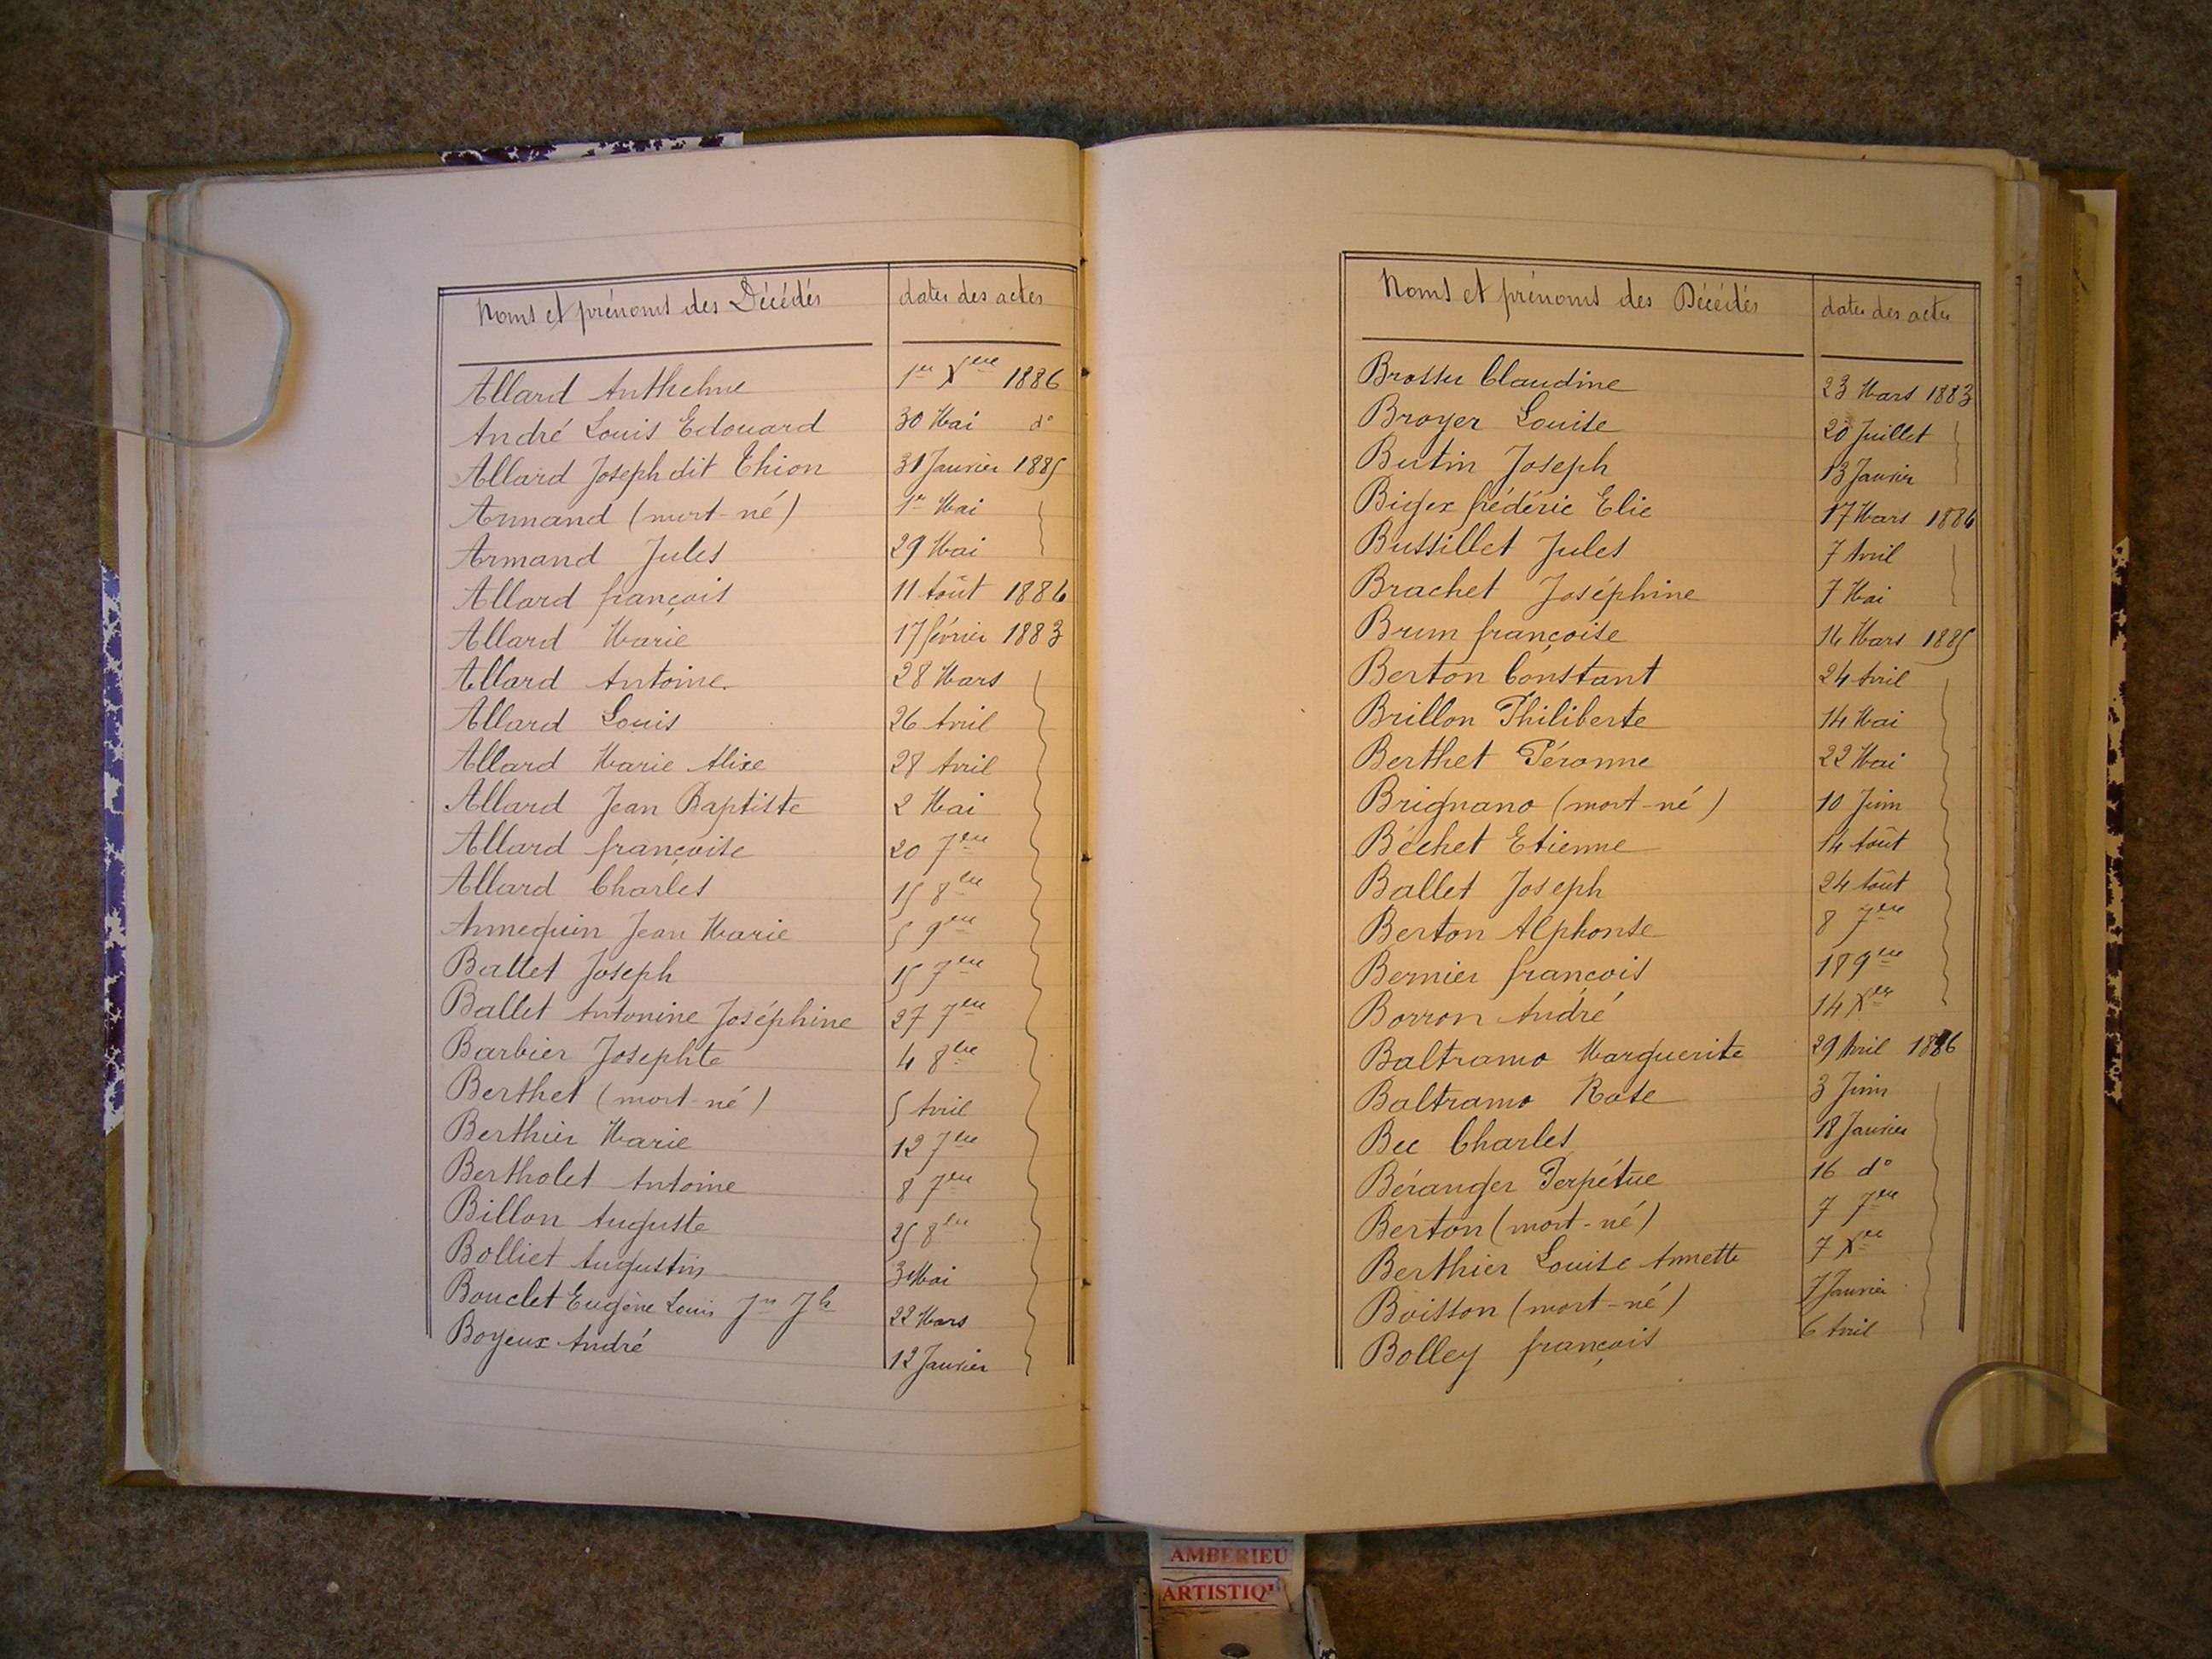 Noms et prénoms des Décédés dates des actes
Allard Anthelme 1er Xbre 1886
André Louis Edouard 30 Mai do
Allard Joseph dit Thion 31 Janvier 1885
Armand (mort-né) 1er Mai
Armand Jules 29 Mai
Allard françois 11 Août 1886
Allard Marie 17 février 1883
Allard Antoine 28 Mars
Allard Louis 26 Avril
Allard Marie Alixe 28 Avril
Allard Jean Baptiste 2 Mai
Allard françoise 20 7bre
Allard Charles 15 8bre
Annequin Jean Marie 5 9bre
Ballet Joseph 15 7bre
Ballet Antonine Joséphine 27 7bre
Barbier Josephte 4 8bre
Berthet (mort-né) 5 Avril
Berthier Marie 12 7bre
Bertholet Antoine 8 7bre
Billon Auguste 25 8bre
Bolliet Augustin 3 Mai
Bouclet Eugène Louis Jn Jh 22 Mars
Boyeux André 12 Janvier
Noms et prénoms des Décédés dates des actes
Brossu Claudine 23 Mars 1883
Broyer Louise 20 Juillet
Butin Joseph 13 Janvier
Bigex frédéric Elie 17 Mars 1884
Bussillet Jules 7 Avril
Brachet Joséphine 7 Mai
Brun françoise 14 Mars 1885
Berton Constant 24 Avril
Brillon Philiberte 14 Mai
Berthet Péronne 22 Mai
Brignano (mort-né) 10 Juin
Béchet Etienne 14 Août
Ballet Joseph 24 Août
Berton Alphonse 8 7bre
Bernier françois 18 9bre
Borron André 14 Xbre
Baltramo Marguerite 29 Avril 1886
Baltramo Rose 3 Juin
Bec Charles 18 Janvier
Béranger Perpétue 16 do
Berton (mort-né) 7 7bre
Berthier Louise Annette 7 Xbre
Boisson (mort-né) 7 Janvier
Bolley françois 6 Avril
AMBERIEU
ARTISTIQU